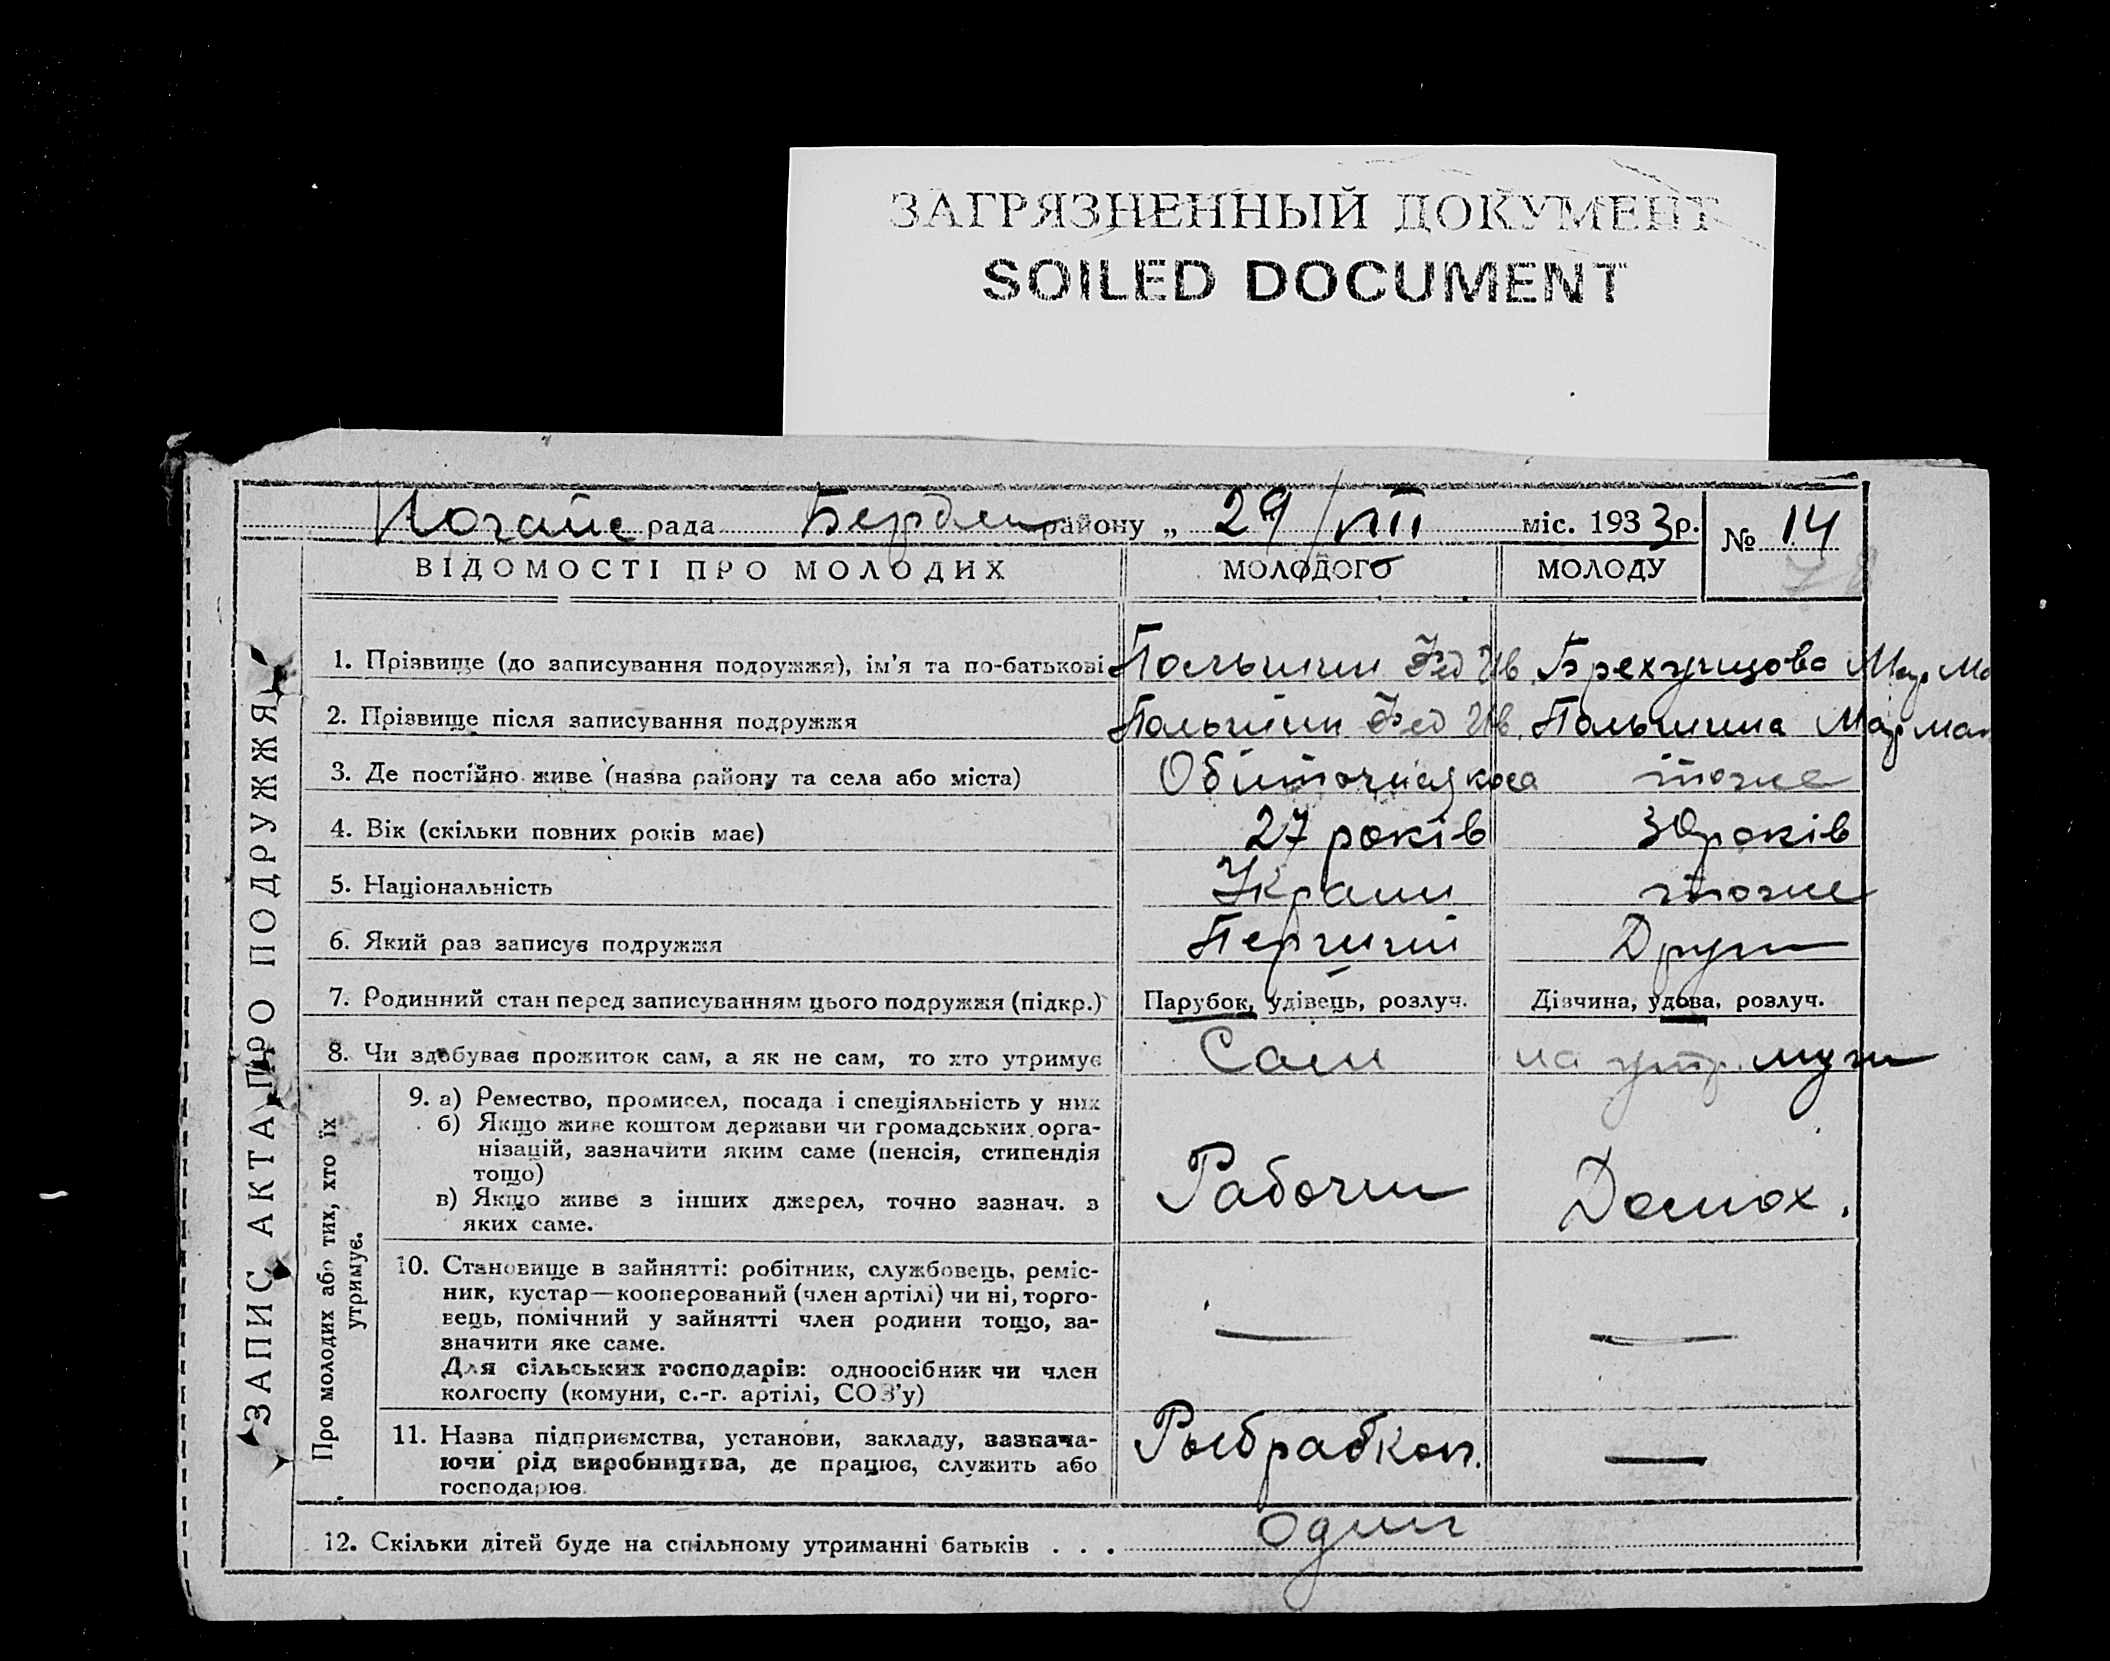 ЗАГРЯЗНЕННЫЙ ДОКУМЕНТ
SOILED DOCUMENT
Ногайс рада Бердян району „ 29/VIII міс. 1933 р. № 14
ВІДОМОСТІ ПРО МОЛОДИХ МОЛОДОГО МОЛОДУ
ЗАПИС АКТА ПРО ПОДРУЖЖЯ
1. Прізвище (до записування подружжя), ім’я та по-батькові Фед Ив. Брехунцова Мар
2. Прізвище після записування подружжя Фед Ив. Мар
3. Де постійно живе (назва району та села або міста) Обиточная коса тоже
4. Вік (скільки повних років має) 27 років 30 років
5. Національність Украин тоже
6. Який раз записує подружжя Перший Други
7. Родинний стан перед записуванням цього подружжя (підкр.) Парубок, удівець, розлуч. Дівчина, удова, розлуч.
8. Чи здобував прожиток сам, а як не сам, то хто утримує Сам на утр. мужи
Про молодих або тих, хто їх утримує.
9. а) Ремество, промисел, посада і спеціяльність у них
б) Якщо живе коштом держави чи громадських орга-
нізацій, зазначити яким саме (пенсія, стипендія
тощо) Рабочи Домох.
в) Якщо живе з інших джерел, точно зазнач. з
яких саме.
10. Становище в зайнятті: робітник, службовець, реміс-
ник, кустар—кооперований (член артілі) чи ні, торго-
вець, помічний у зайнятті член родини тощо, за-
значити яке саме. — —
Для сільських господарів: одноосібник чи член
колгоспу (комуни, с.-г. артілі, СОЗ’у)
11. Назва підприємства, установи, закладу, зазнача-
ючи рід виробництва, де працює, служить або Рыбрабкоп. —
господарює
12. Скільки дітей буде на спільному утриманні батьків . . . один